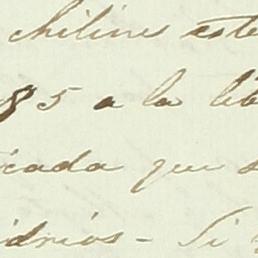 chilines este
85 a la lib
icada que s
idrios - Si